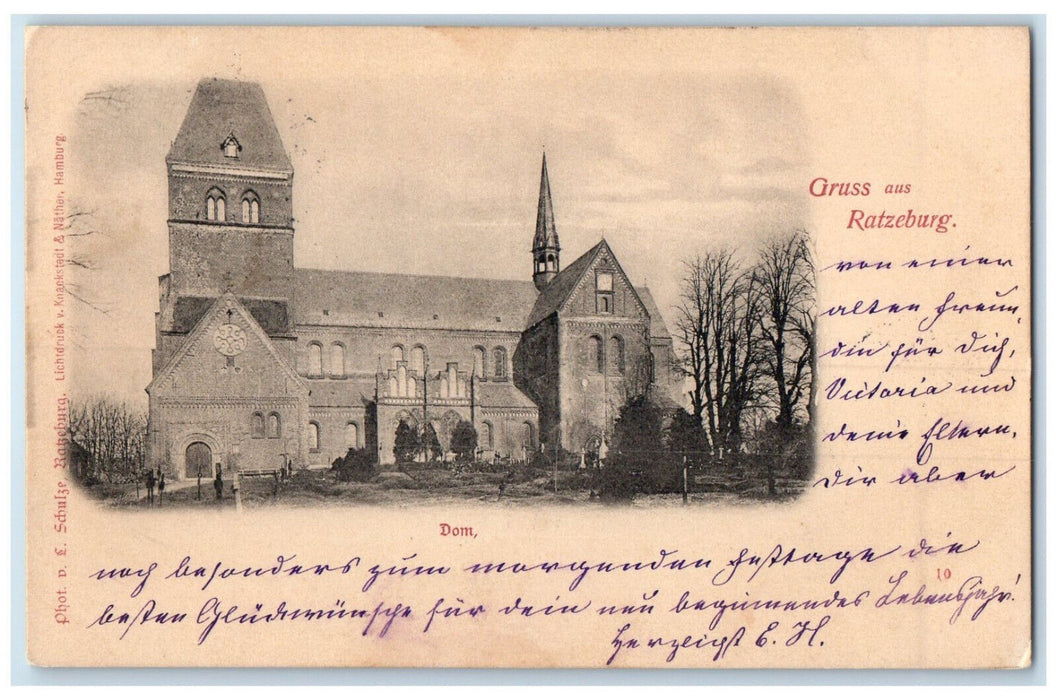 Phot. v. L. Schulze, Ratzeburg. Lichtdruck v. Knackstedt & Näther, Hamburg.
Gruss aus
Ratzeburg.
von einer
alten Freun-
din für Dich,
Victoria und
deine Eltern.
Dir aber
Dom,
noch besonders zum morgenden Festtage die
10
besten Glückwünsche für dein neu beginnendes Lebensjahr!
Herzlichst E. H.